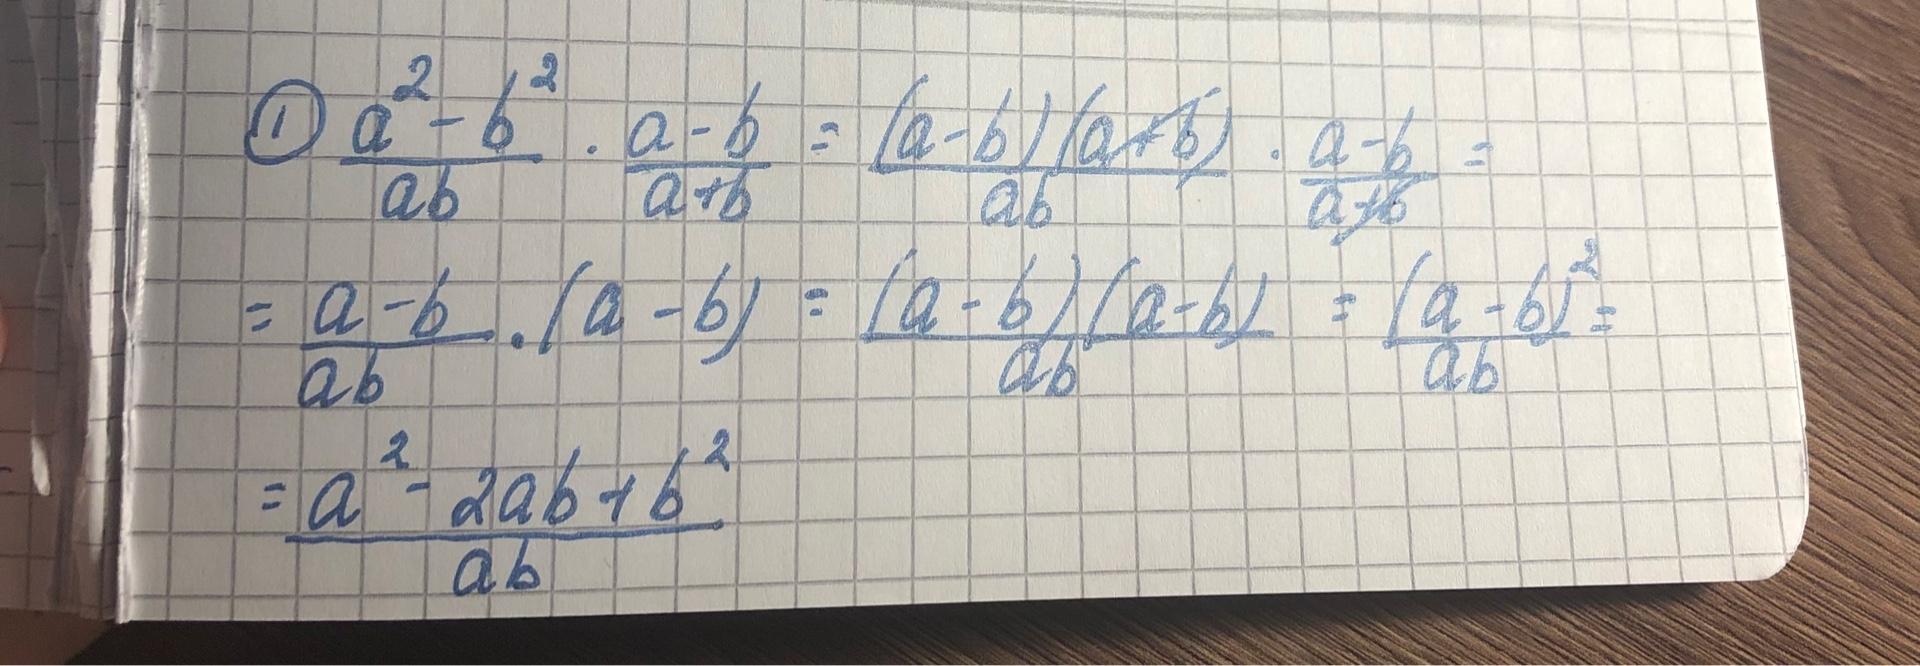 ① \frac{a^2 - b^2}{ab} \cdot \frac{a-b}{a+b} = \frac{(a-b)(a+b)}{ab} \cdot \frac{a-b}{a+b} =
= \frac{a-b}{ab} \cdot (a-b) = \frac{(a-b)(a-b)}{ab} = \frac{(a-b)^2}{ab} =
= \frac{a^2 - 2ab + b^2}{ab}